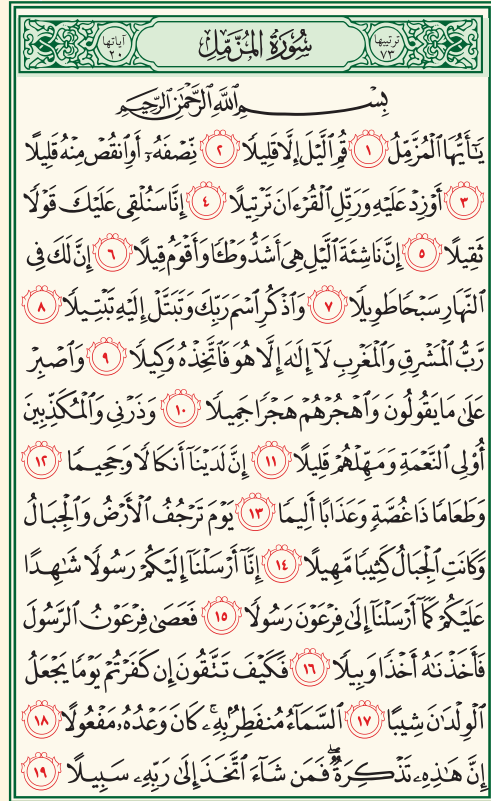 ترتيبها ٧٣ سُورَةُ المُزَّمِّلِ آياتها ٢٠
بِسْمِ ٱللَّهِ ٱلرَّحْمَٰنِ ٱلرَّحِيمِ
يَٰٓأَيُّهَا ٱلْمُزَّمِّلُ ١ قُمِ ٱلَّيْلَ إِلَّا قَلِيلًا ٢ نِّصْفَهُۥٓ أَوِ ٱنقُصْ مِنْهُ قَلِيلًا
٣ أَوْ زِدْ عَلَيْهِ وَرَتِّلِ ٱلْقُرْءَانَ تَرْتِيلًا ٤ إِنَّا سَنُلْقِى عَلَيْكَ قَوْلًا
ثَقِيلًا ٥ إِنَّ نَاشِئَةَ ٱلَّيْلِ هِىَ أَشَدُّ وَطْـًٔا وَأَقْوَمُ قِيلًا ٦ إِنَّ لَكَ فِى
ٱلنَّهَارِ سَبْحًا طَوِيلًا ٧ وَٱذْكُرِ ٱسْمَ رَبِّكَ وَتَبَتَّلْ إِلَيْهِ تَبْتِيلًا ٨
رَّبُّ ٱلْمَشْرِقِ وَٱلْمَغْرِبِ لَآ إِلَٰهَ إِلَّا هُوَ فَٱتَّخِذْهُ وَكِيلًا ٩ وَٱصْبِرْ
عَلَىٰ مَا يَقُولُونَ وَٱهْجُرْهُمْ هَجْرًا جَمِيلًا ١٠ وَذَرْنِى وَٱلْمُكَذِّبِينَ
أُو۟لِى ٱلنَّعْمَةِ وَمَهِّلْهُمْ قَلِيلًا ١١ إِنَّ لَدَيْنَآ أَنكَالًا وَجَحِيمًا ١٢
وَطَعَامًا ذَا غُصَّةٍ وَعَذَابًا أَلِيمًا ١٣ يَوْمَ تَرْجُفُ ٱلْأَرْضُ وَٱلْجِبَالُ
وَكَانَتِ ٱلْجِبَالُ كَثِيبًا مَّهِيلًا ١٤ إِنَّآ أَرْسَلْنَآ إِلَيْكُمْ رَسُولًا شَٰهِدًا
عَلَيْكُمْ كَمَآ أَرْسَلْنَآ إِلَىٰ فِرْعَوْنَ رَسُولًا ١٥ فَعَصَىٰ فِرْعَوْنُ ٱلرَّسُولَ
فَأَخَذْنَٰهُ أَخْذًا وَبِيلًا ١٦ فَكَيْفَ تَتَّقُونَ إِن كَفَرْتُمْ يَوْمًا يَجْعَلُ
ٱلْوِلْدَٰنَ شِيبًا ١٧ ٱلسَّمَآءُ مُنفَطِرٌۢ بِهِۦۚ كَانَ وَعْدُهُۥ مَفْعُولًا ١٨
إِنَّ هَٰذِهِۦ تَذْكِرَةٌۖ فَمَن شَآءَ ٱتَّخَذَ إِلَىٰ رَبِّهِۦ سَبِيلًا ١٩